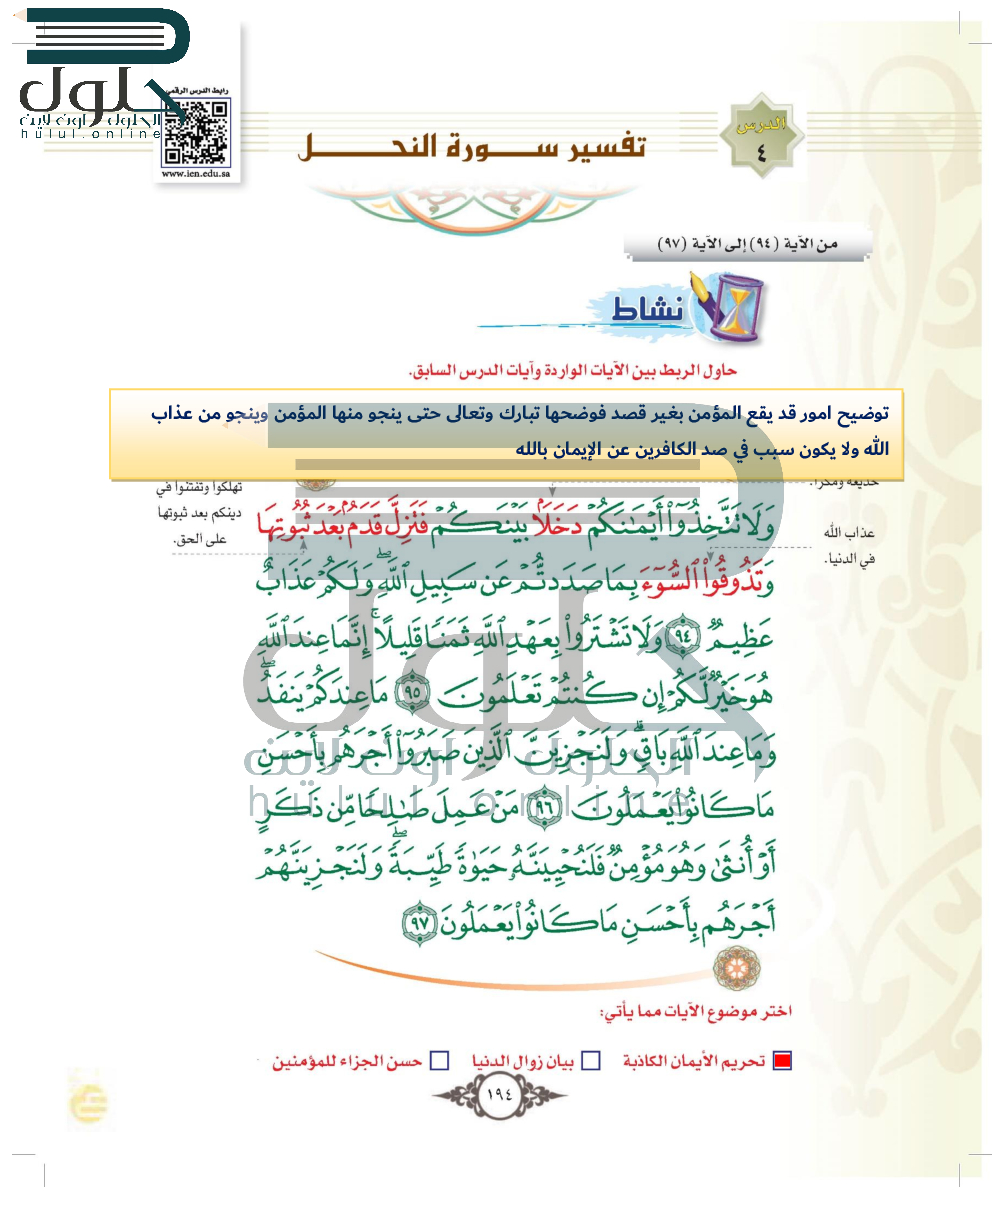 حلول
الحلول اون لاين
hulul.online
رابط الدرس الرقمي
www.ien.edu.sa
الدرس
٤
تفسير سورة النحل
من الآية (٩٤) إلى الآية (٩٧)
نشاط
حاول الربط بين الآيات الواردة وآيات الدرس السابق.
توضيح امور قد يقع المؤمن بغير قصد فوضحها تبارك وتعالى حتى ينجو منها المؤمن وينجو من عذاب
الله ولا يكون سبب في صد الكافرين عن الإيمان بالله
خديعة ومكرًا.
تهلكوا وتفتنوا في
دينكم بعد ثبوتها
على الحق.
عذاب الله
في الدنيا.
وَلَا تَتَّخِذُوٓا۟ أَيْمَـٰنَكُمْ دَخَلًۢا بَيْنَكُمْ فَتَزِلَّ قَدَمٌۢ بَعْدَ ثُبُوتِهَا
وَتَذُوقُوا۟ ٱلسُّوٓءَ بِمَا صَدَدتُّمْ عَن سَبِيلِ ٱللَّهِ ۖ وَلَكُمْ عَذَابٌ
عَظِيمٌ ٩٤ وَلَا تَشْتَرُوا۟ بِعَهْدِ ٱللَّهِ ثَمَنًا قَلِيلًا ۚ إِنَّمَا عِندَ ٱللَّهِ
هُوَ خَيْرٌ لَّكُمْ إِن كُنتُمْ تَعْلَمُونَ ٩٥ مَا عِندَكُمْ يَنفَدُ ۖ
وَمَا عِندَ ٱللَّهِ بَاقٍ ۗ وَلَنَجْزِيَنَّ ٱلَّذِينَ صَبَرُوٓا۟ أَجْرَهُم بِأَحْسَنِ
مَا كَانُوا۟ يَعْمَلُونَ ٩٦ مَنْ عَمِلَ صَـٰلِحًا مِّن ذَكَرٍ
أَوْ أُنثَىٰ وَهُوَ مُؤْمِنٌ فَلَنُحْيِيَنَّهُۥ حَيَوٰةً طَيِّبَةً ۖ وَلَنَجْزِيَنَّهُمْ
أَجْرَهُم بِأَحْسَنِ مَا كَانُوا۟ يَعْمَلُونَ ٩٧
حلول
الحلول اون لاين
hulul online
اختر موضوع الآيات مما يأتي:
تحريم الأيمان الكاذبة بيان زوال الدنيا حسن الجزاء للمؤمنين
١٩٤